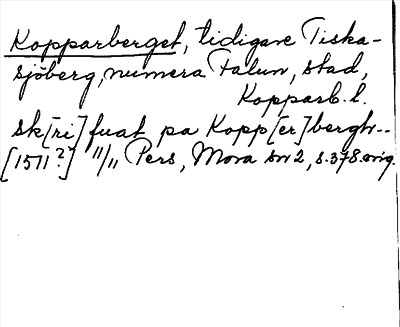 Kopparberget, tidigare Tiska-
sjöberg, numera Falun, stad,
Kopparb. l.
sk[ri]fuat pa Kopp[er]bergh--
[1511?] 11/11 Pers, Mora sn 2, s. 378. orig.